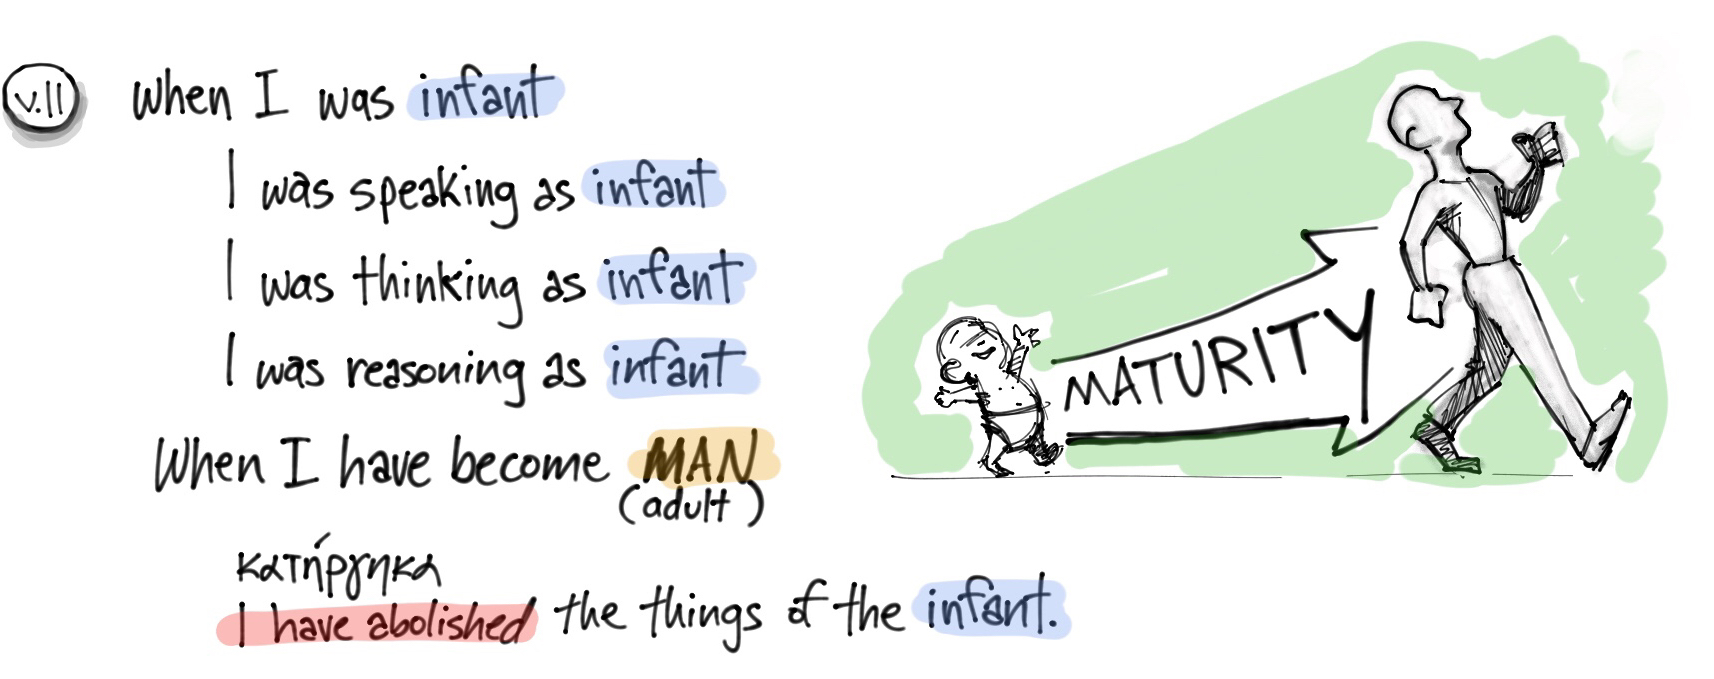 v.11
When I was infant
I was speaking as infant
I was thinking as infant
I was reasoning as infant
When I have become MAN
(adult)
κατήργηκα
I have abolished the things of the infant.
MATURITY